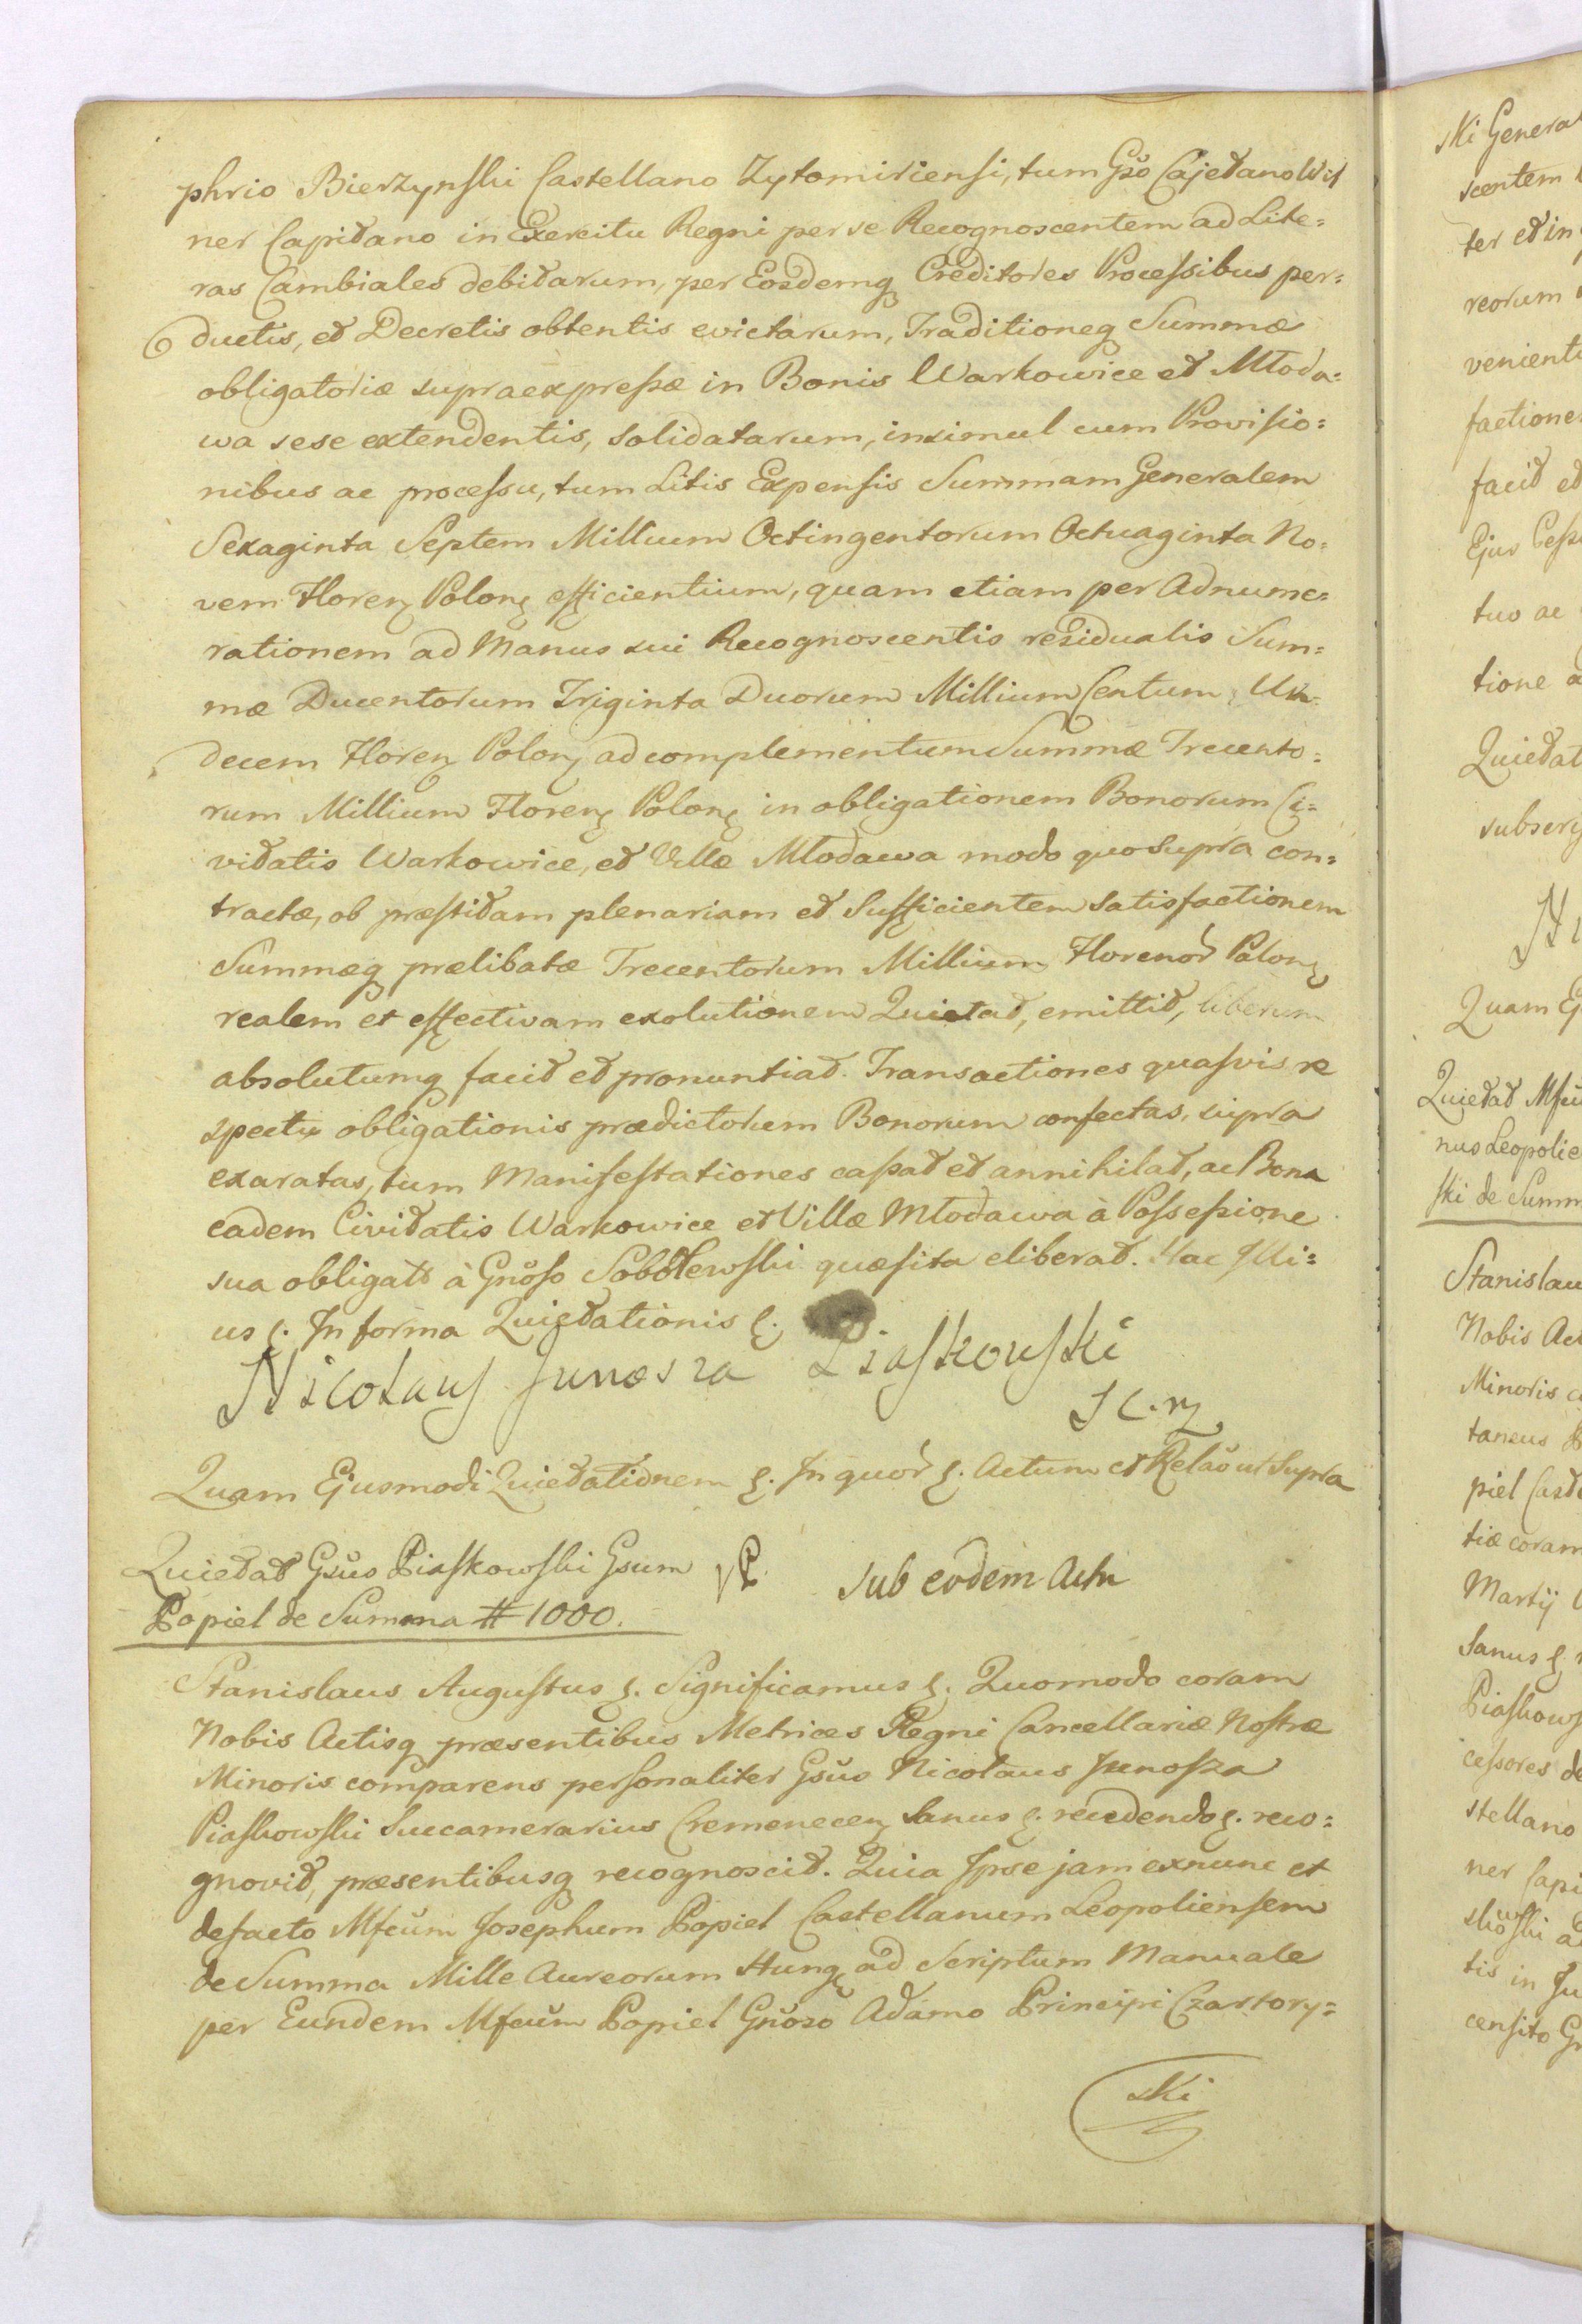 phrio Bierzynski Castellano Zytomiriensi, tum Gso Cajetano Wit
ner Capitano in Exercitu Regni per se Recognoscentem ad Lite=
ras Cambiales debitarum, per Eosdemq Creditores Processibus per=
ductis, et Decretis obtentis evictarum, Traditioneq Summæ
obligatoriæ supraexpressæ in Bonis Warkowice et Młoda=
wa sese extendentis, solidatarum, insimul cum Provisio=
nibus ac processu, tum Litis Expensis Summam Generalem
Sexaginta Septem Millium Octingentorum Octuaginta No=
vem Floren Polon efficientium, quam etiam per Adnume=
rationem ad Manus sui Recognoscentis residualis Sum=
mæ Ducentorum Triginta Duorum Millium Centum Un=
decem Floren Polon ad complementum Summæ Trecento=
rum Millium Floren Polon in obligationem Bonorum Ci=
vitatis Warkowice, et Villæ Młodawa modo quo supra con=
tractæ, ob præstitam plenariam et Sufficientem satisfactionem
Summæq prælibatæ Trecentorum Millium Florenor Polon
realem et effectivam exolutionem Quietat, emittit, liberum
absolutumq facit et pronuntiat. Transactiones quasvis re
spectu obligationis prædictorum Bonorum confectas, supra
exaratas, tum Manifestationes cassat et annihilat, ac Bona
eadem Civitatis Warkowice et Villæ Młodawa à Possessione
sua obligato à Gnoso Sobolewski quæsita eliberat. Hac Illi=
us ę. In forma Quietationis ę.
Nicolaus Junosza Piaskowski
S C. rz
Quam Ejusmodi Quietationem ę. In quor ę. Actum et Relao ut Supra
Quietat Gsus Piaskowski Gsum
Popiel de Summa # 1000.
sub eodem Actu
Stanislaus Augustus ę. Significamus ę. Quomodo coram
Nobis Actisq præsentibus Metrices Regni Cancellariæ Nostræ
Minoris comparens personaliter Gsus Nicolaus Junosza
Piaskowski Succamerarius Cremenecen Sanus ę. recedendo ę. reco=
gnovit, præsentibusq recognoscit. Quia Ipse jam exnunc et
defacto Mfcum Josephum Popiel Castellanum Leopoliensem
de Summa Mille Aureorum Hung ad Scriptum Manuale
per Eundem Mfcum Popiel Gnoso Adamo Principi Czartory=
ski
ski General
scentem
ter et in
reorum
venient
factione
facit et
Ejus Cess
tus ac
tione a
Quietat
subscri
Quam E
Quietat Mfcu
nus Leopolie
ski de Summ
Stanislau
Nobis Act
Minoris c
taneus
piel Cast
tiæ coram
Martij
Sanus ę
Piaskows
cessores de
stellano
ner Capi
tis in Ju
censito G